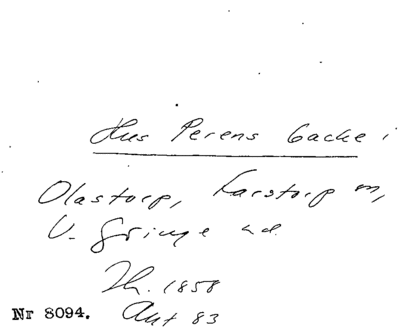 Hus Perens backe i
Olastorp, Farstorp sn,
V. Göinge hd.
Th. 1858
Aut 83
Nr 8094.